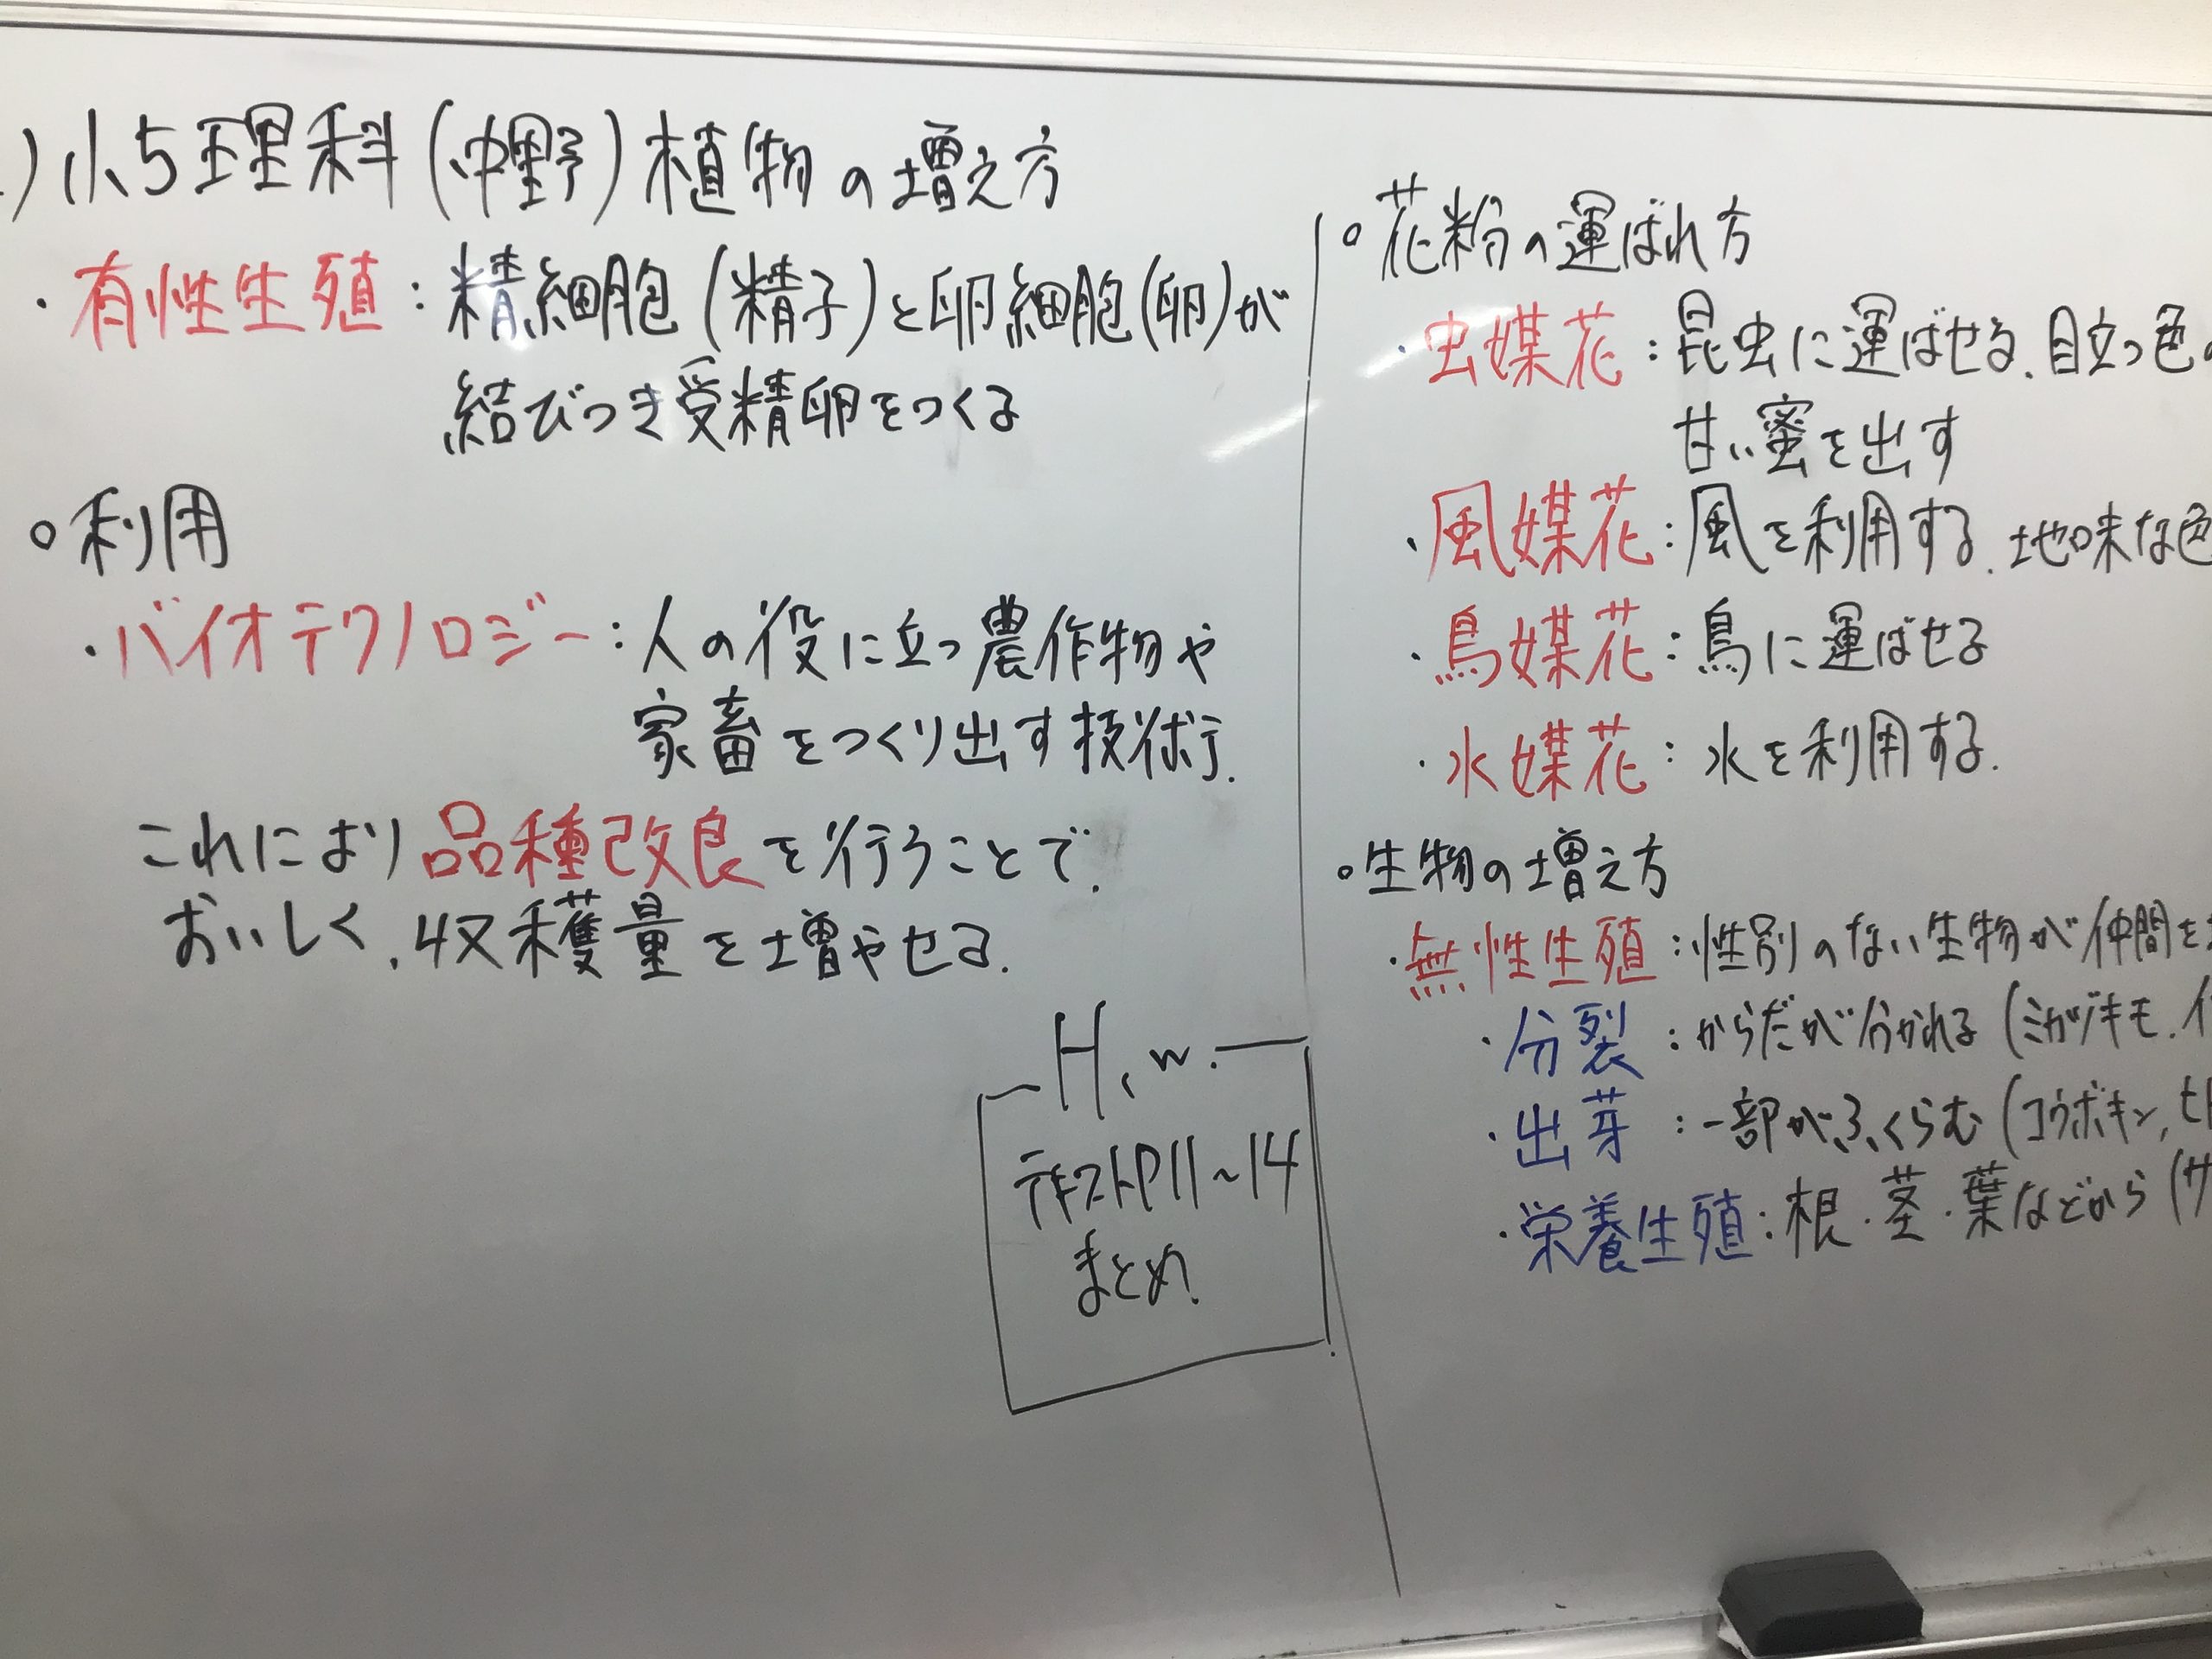 )小5理科(中野)植物の増え方
・有性生殖:精細胞(精子)と卵細胞(卵)が
結びつき受精卵をつくる
○利用
・バイオテクノロジー:人の役に立つ農作物や
家畜をつくり出す技術.
これにより品種改良を行うことで.
おいしく.収穫量を増やせる.
H.w.
テキストP11~14
まとめ.
○花粉の運ばれ方
・虫媒花:昆虫に運ばせる.目立つ色
甘い蜜を出す
・風媒花:風を利用する.地味な色
・鳥媒花:鳥に運ばせる
・水媒花:水を利用する.
○生物の増え方
・無性生殖:性別のない生物が仲間を
・分裂:からだが分かれる(ミカヅキモ.
・出芽:一部がふくらむ(コウボキン,ヒ
・栄養生殖:根・茎・葉などから(サ